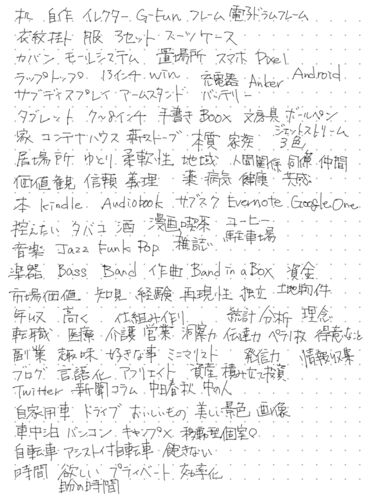 机 自作 イレクター G-Fun フレーム 電子ドラムフレーム
衣紋掛け 服 3セット スーツケース
カバン モールシステム 置場所 スマホ Pixel
ラップトップ 13インチ Win 充電器 Anker Android
サブディスプレイ アームスタンド バッテリー
タブレット 7〜8インチ 手書き Boox 文房具 ボールペン
家 コンテナハウス 薪ストーブ 本質 家族 ジェットストリーム 3色
居場所 ゆとり 柔軟性 地域 人間関係 同僚 仲間
価値観 信頼 義理 薬 病気 健康 共感
本 kindle Audiobook サブスク Evernote GoogleOne
控えたい タバコ 酒 漫画喫茶 コーヒー
音楽 Jazz Funk Pop 雑誌 駐車場
楽器 Bass Band 作曲 Band in a Box 資金
市場価値 知見 経験 再現性 独立 土地物件
年収 高く 仕組み作り 統計 分析 理念
転職 医療 介護 営業 洞察力 伝達力 ペラ1枚 得意なこと
副業 趣味 好きな事 ミニマリスト 発信力 情報収集
ブログ 言語化 アフィリエイト 資産 積み立て投資
Twitter 新聞コラム 中田春秋 中の人
自家用車 ドライブ おいしいもの 美しい景色 画像
車中泊 バンコン キャンプ× 移動型個室○
自転車 アシスト付自転車 飽きない
時間 欲しい プライベート 効率化
自分の時間